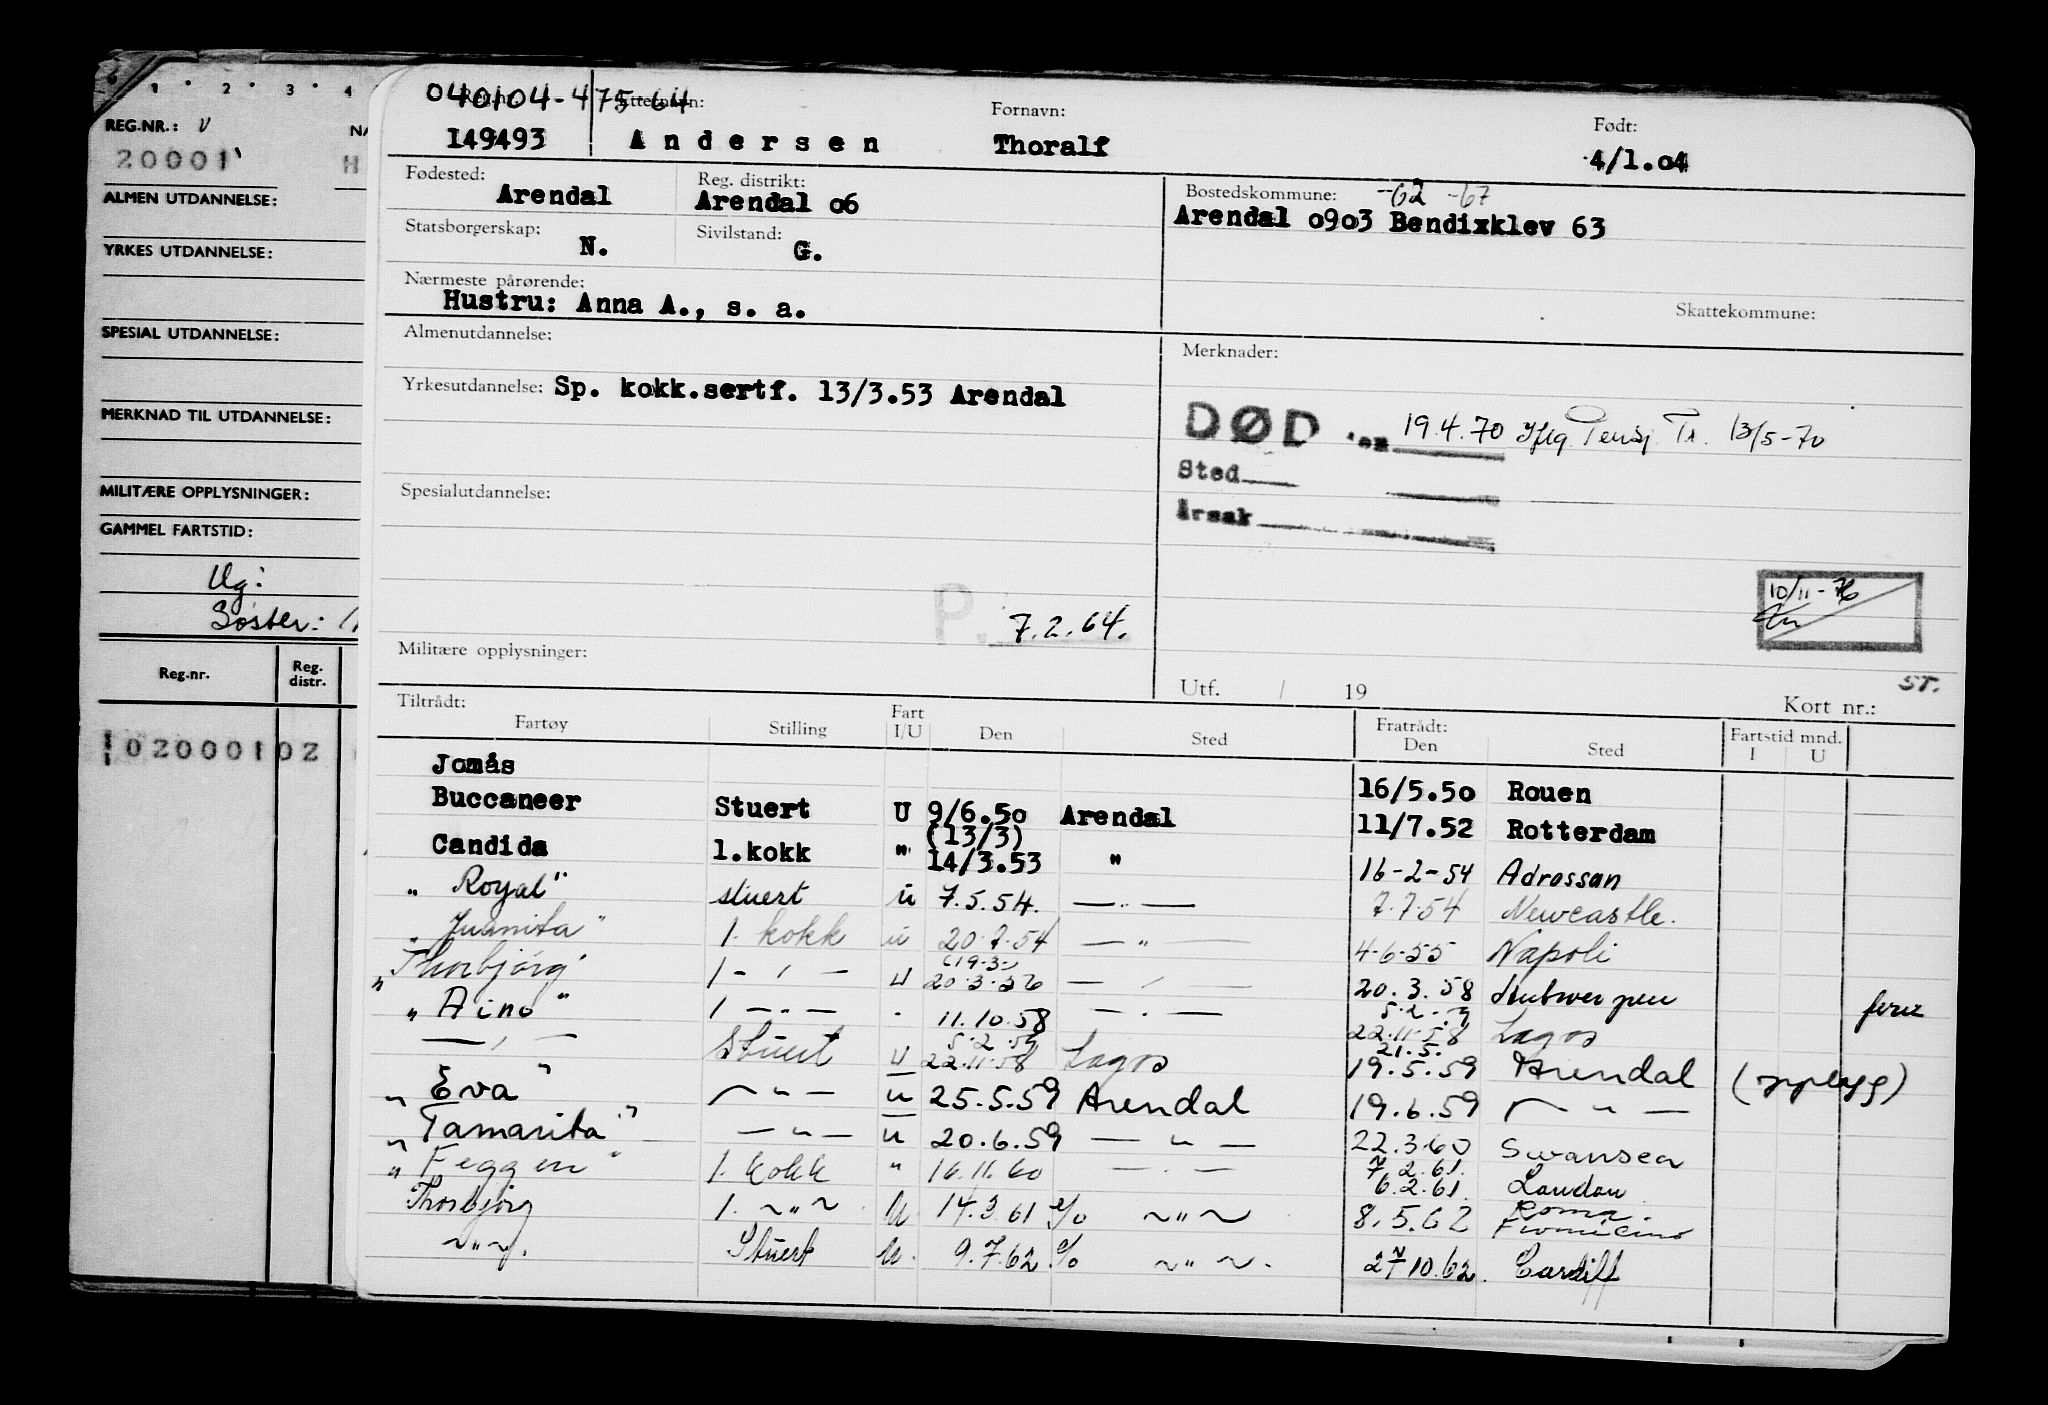 6 1 2 3 4
REG.NR.: V NA
20001 H
ALMEN UTDANNELSE:
YRKES UTDANNELSE:
SPESIAL UTDANNELSE:
MERKNAD TIL UTDANNELSE:
MILITÆRE OPPLYSNINGER:
GAMMEL FARTSTID:
Ug:
Søster:
Reg.nr. Reg. distr.
02000102
040104-475 64
Reg.nr. Etternavn: Fornavn: Født:
149493 Andersen Thoralf 4/1.04
Fødested: Reg. distrikt: Bostedskommune: -62 -67
Arendal Arendal 06 Arendal 0903 Bendixklev 63
Statsborgerskap: Sivilstand:
N. G.
Nærmeste pårørende:
Hustru: Anna A., s. a. Skattekommune:
Almenutdannelse: Merknader:
Yrkesutdannelse: Sp. kokk.sertf. 13/3.53 Arendal
DØD den 19.4.70 Iflg. Pensj. Tr. 13/5-70
Sted
Årsak
Spesialutdannelse:
P. 7.2.64.
10/11-76
Militære opplysninger:
Utf. / 19 ST. Kort nr.:
Tiltrådt: Fartøy Stilling Fart I/U Den Sted Fratrådt: Den Sted Fartstid mnd. I U
Jomås 16/5.50 Rouen
Buccaneer Stuert U 9/6.50 Arendal 11/7.52 Rotterdam
(13/3)
Candida 1.kokk " 14/3.53 " 16-2-54 Adrossan
" Royal" stuert u 7.5.54. — " — 7.7.54 Newcastle.
" Juanita" 1. kokk u 20.7.54 — " — 4-6-55 Napoli
(19.3)
" Thorbjørg" 1 - ' - u 20.3.56 — ' — 20.3.58 Antwerpen ferie
" Aino" 1 — . — . 11.10.58 — . — 5.2.59 22.11.58 Lagos
— ' — Stuert u 5.2.59 22.11.58 Lagos 21.5. 19.5.59 Arendal (opplegg)
" Eva" — " — u 25.5.59 Arendal 19.6.59 — " —
" Tamarita" — " — u 20.6.59 — " — 22.3.60 Swansea
" Feggen" 1. kokk " 16.11.60 — . — 7.2.61. 6.2.61. London
Thorbjørg 1. ~"~ u 14.3.61 e/o ~"~ 8.5.62 Roma Fiumicino
~"~. Stuert u. 9.7.62 e/o ~"~. 27.10.62. Cardiff